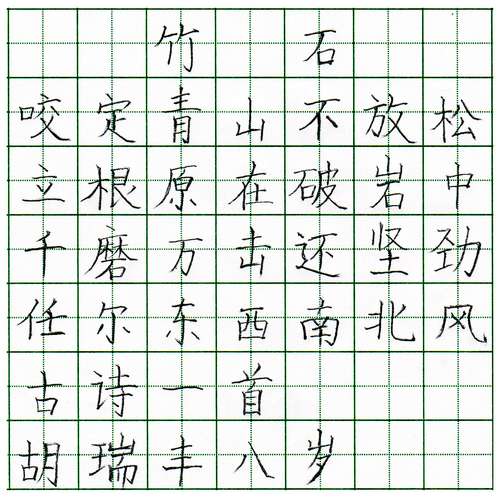 竹 石
咬定青山不放松
立根原在破岩中
千磨万击还坚劲
任尔东西南北风
古诗一首
胡瑞丰八岁